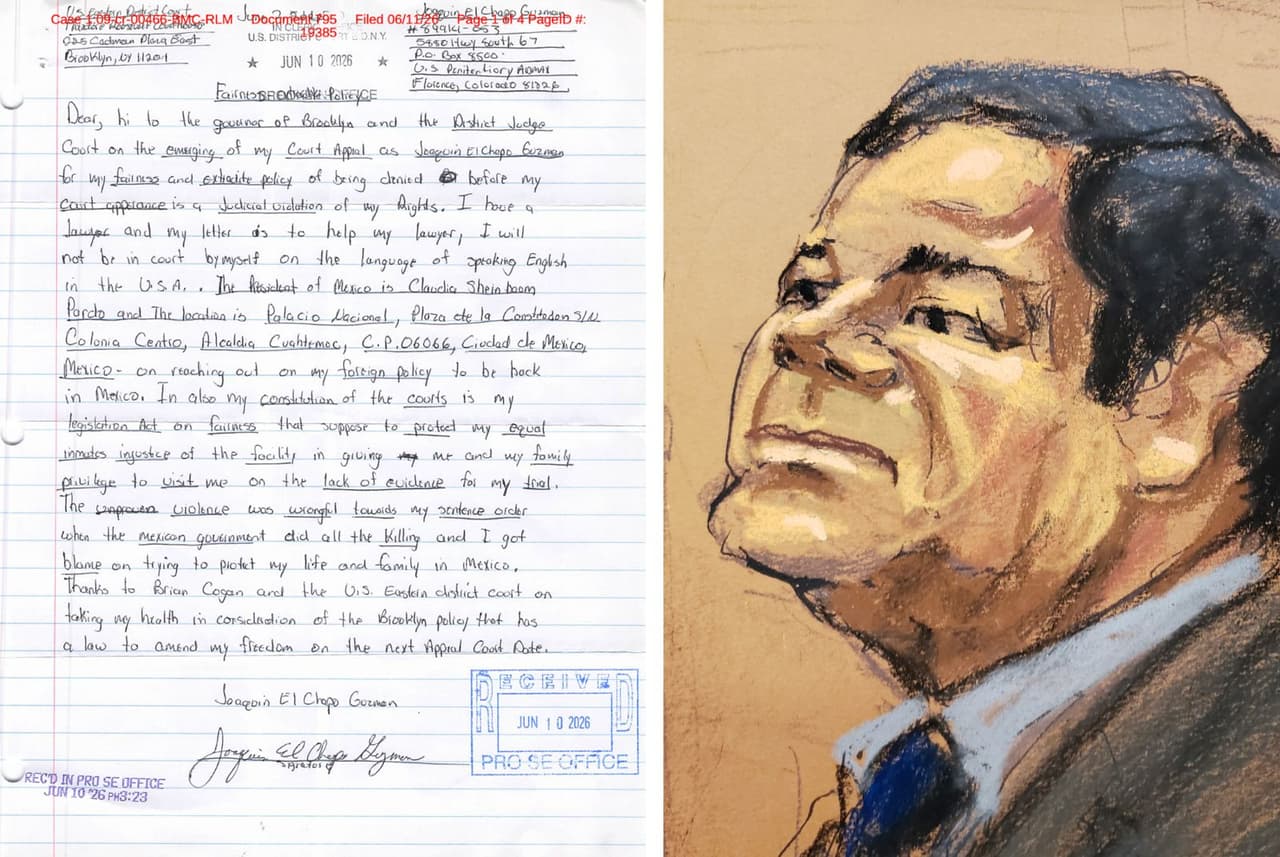 Case 1:09-cr-00466-BMC-RLM Document 795 Filed 06/11/26 Page 1 of 4 PageID #:
19385
U.S. Eastern District Court
225 Cadman Plaza East
Brooklyn, NY 11201
U.S. DISTRICT
JUN 10 2026
Joaquin El Chapo Guzman
5880 Hwy South 67
P.O. Box 8500
U.S Penitentiary ADMAX
Florence, Colorado 81226
Dear, hi to the govenor of Brooklyn and the District Judge
Court on the emerging of my Court Appral as Joaquin El Chapo Guzman
for my fairness and extradite policy of being denied before my
court apperance is a Judicial violation of my Rights. I have a
lawyer and my letter is to help my lawyer, I will
not be in court bymyself on the language of speaking English
in the U.S.A. . The President of Mexico is Claudia Sheinbaum
Pardo and The location is Palacio Nacional, Plaza de la Constitution S/N
Colonia Centro, Alcaldia Cuahtemoc, C.P.06066, Ciudad de Mexico,
Mexico - on reaching out on my foreign policy to be back
in Mexico. In also my constitution of the courts is my
legislation Act on fairness that suppose to protect my equal
inmates injustice of the facility in giving me and my family
privilege to visit me on the lack of evidence for my trial.
The violence was wrongful towards my sentence order
when the mexican government did all the killing and I got
blame on trying to protet my life and family in Mexico.
Thanks to Brian Cogan and the U.S. Eastern district court on
taking my health in consideration of the Brooklyn policy that has
a law to amend my freedom on the next Appral Court Date.
Joaquin El Chapo Guzman
Joaquin El Chapo Guzman
RECEIVED
JUN 10 2026
PRO SE OFFICE
REC'D IN PRO SE OFFICE
JUN 10 '26 PM3:23